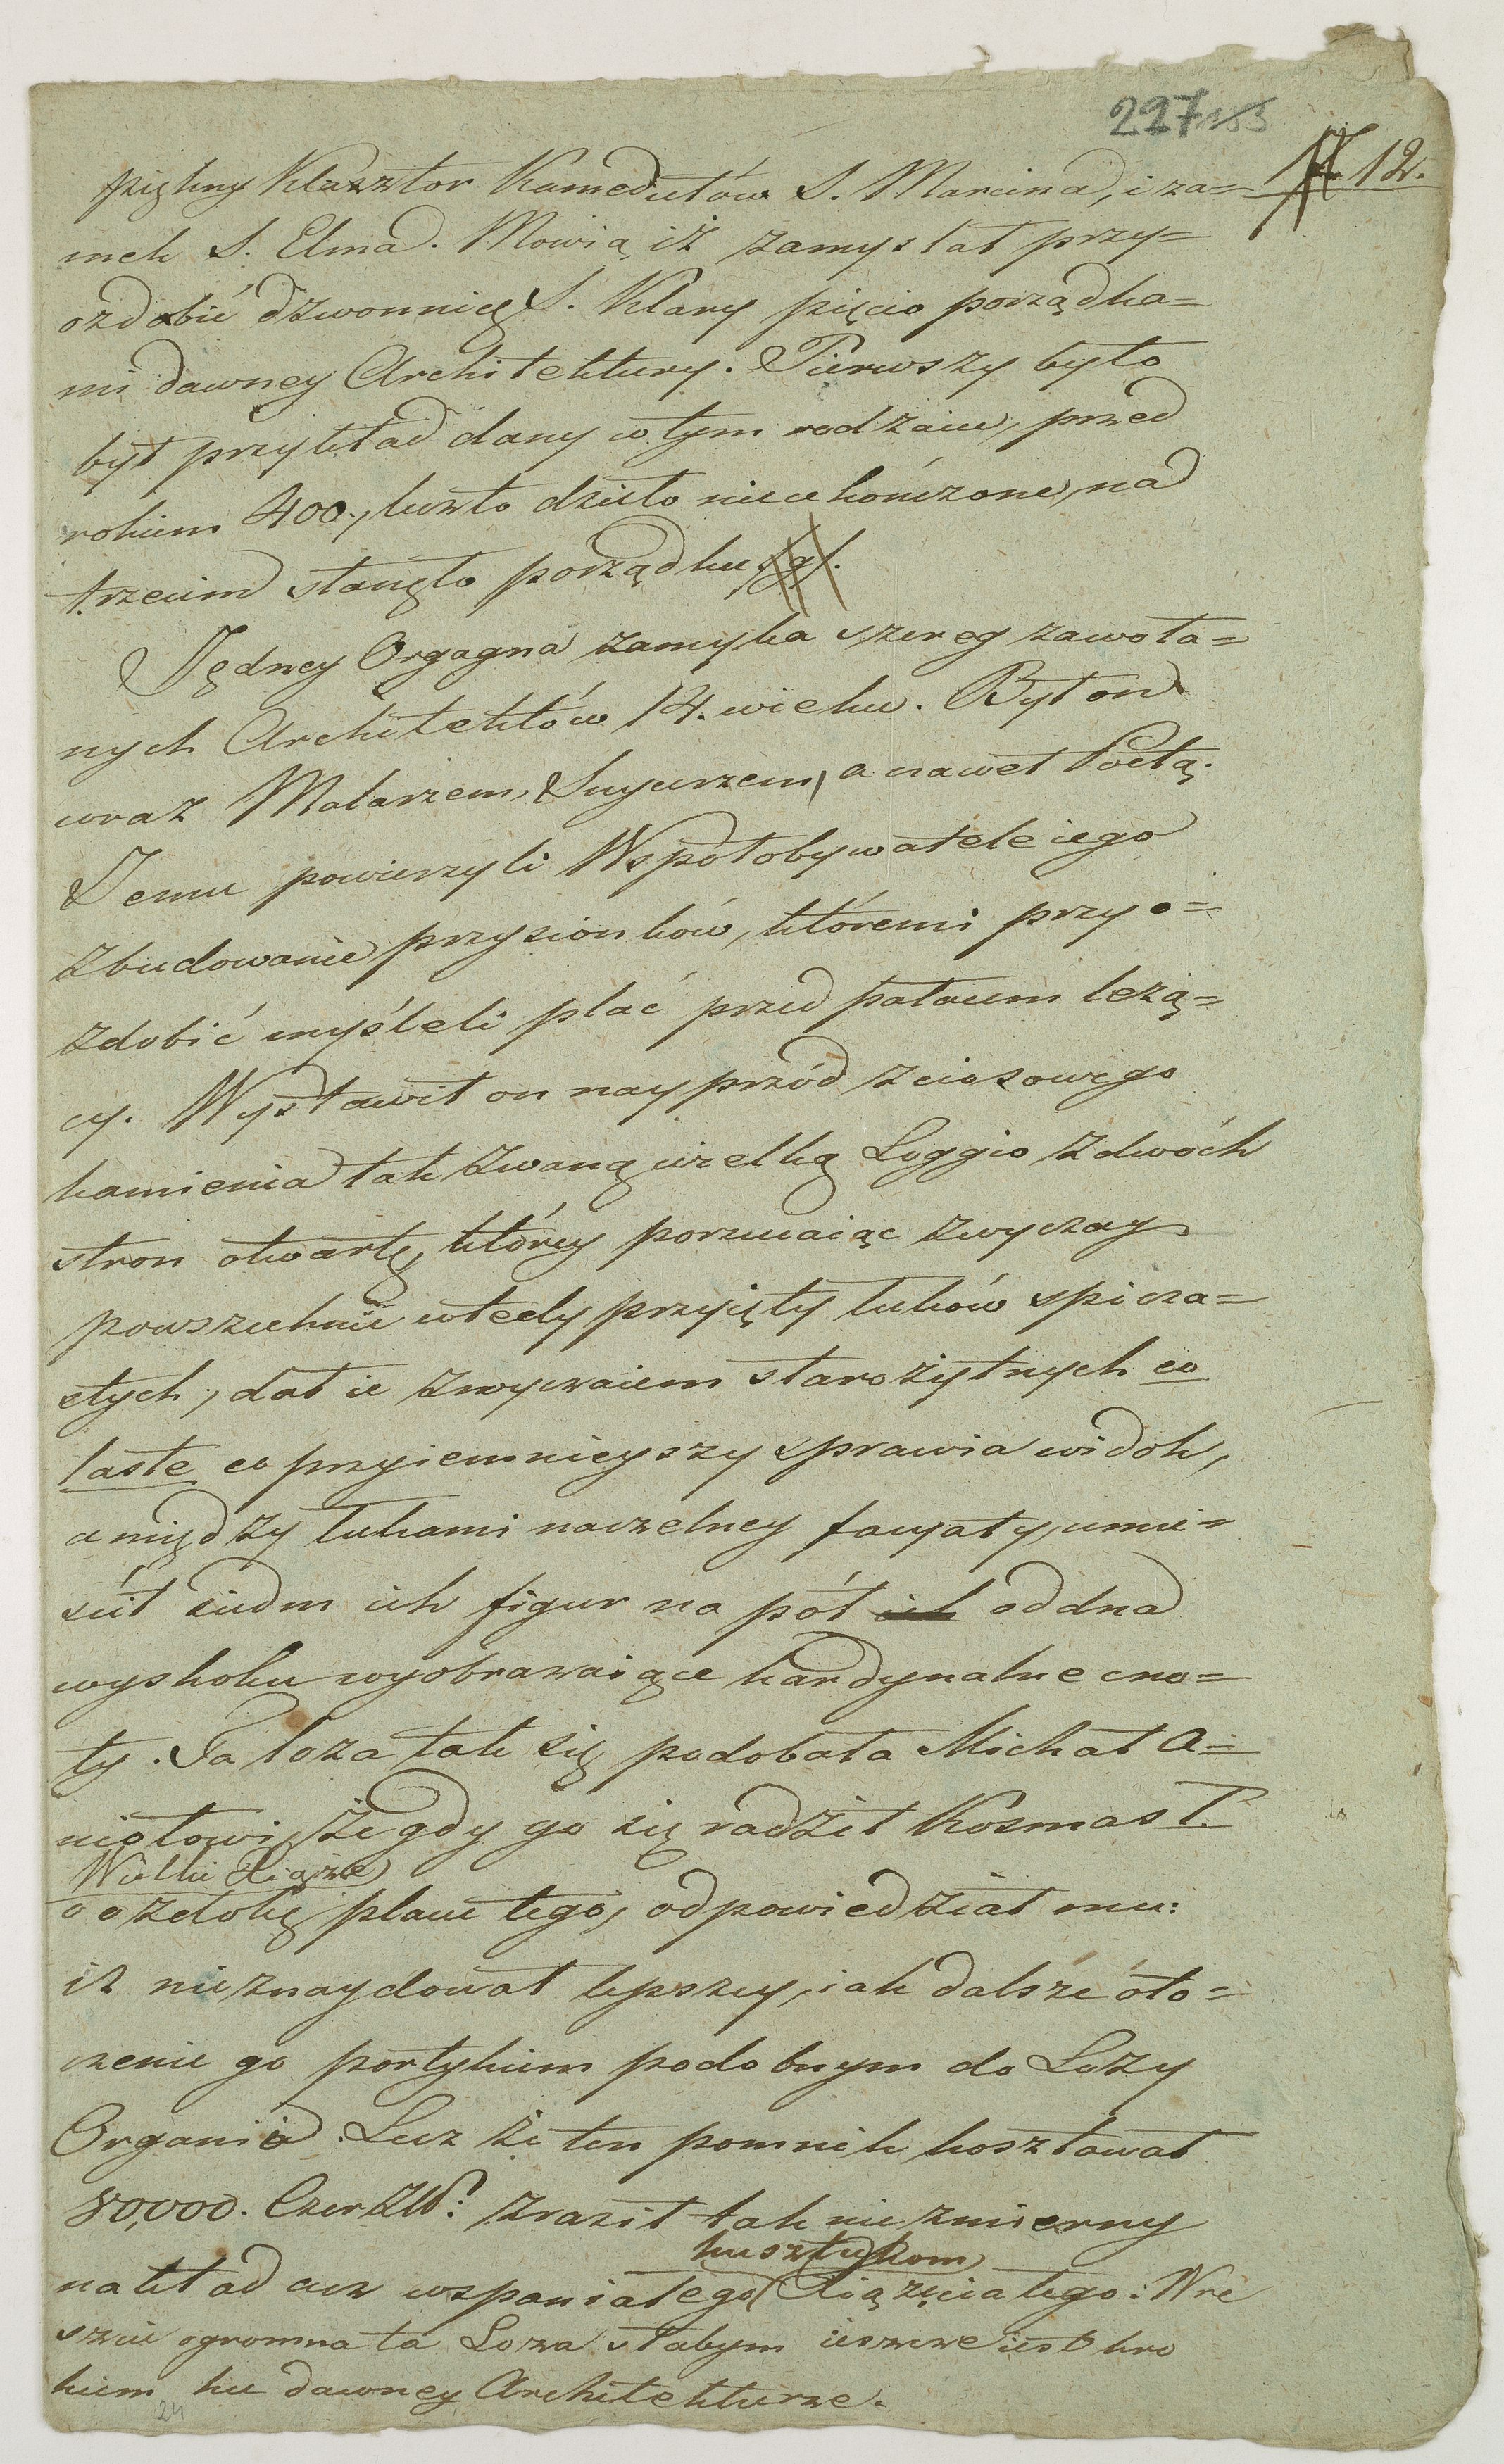 227 153
12.
piękny Klasztor Kamedułów S. Marcina, i za=
mek S. Elma. Mowią iż zamyslał przy=
ozdobić dzwonnicę S. Klary pięcio porządka=
mi dawney Architektury. Pierwszy byłto
był przykład dany w tym rodzaiu, przed
rokiem 400., lecz to dzieło nieukończone, nad
trzecim stanęło porządku.
Jędrzey Orgagna zamyka szereg zawoła=
nych Architektów 14. wieku. Był on
wraz Malarzem, Snycerzem, a nawet Poetą.
Jemu powierzyli Wspołobywatele iego
zbudowanie przysionków, któremi przyo=
zdobić myśleli plac przed pałacem leżą=
cy. Wystawił on nayprzód z ciosowego
kamienia tak zwaną wielką Loggio z dwóch
stron otwartą, którey porzucaiąc zwyczay
powszechnie wtedy przyięty łuków spicza=
stych, dał ie zwyczaiem starożytnych co
laste co przyiemnieyszy sprawia widok,
a między łukami naczelney facyaty, umie=
ścił siedm ich figur na pół ich od dna
wyskoku wyobrażaiące kardynalne cno=
ty. Ta loża tak się podobała Michał A=
niołowi, że gdy go się radził Kosmas I.
Wielki Xiąże
o ozdobę placu tego, odpowiedział mu:
iż nieznaydował lepszey, iak dalsze oto=
czenie go portykiem podobnym do Loży
Organia. Lecz że ten pomnik kosztował
80,000. Czer Zło: zraził tak niezmierny
kusztykom
nakład acz wspaniałego Xiążęcia tego: Wre
szcie ogromna ta Loża słabym ieszcze iest kro
kiem ku dawney Architekturze.
24